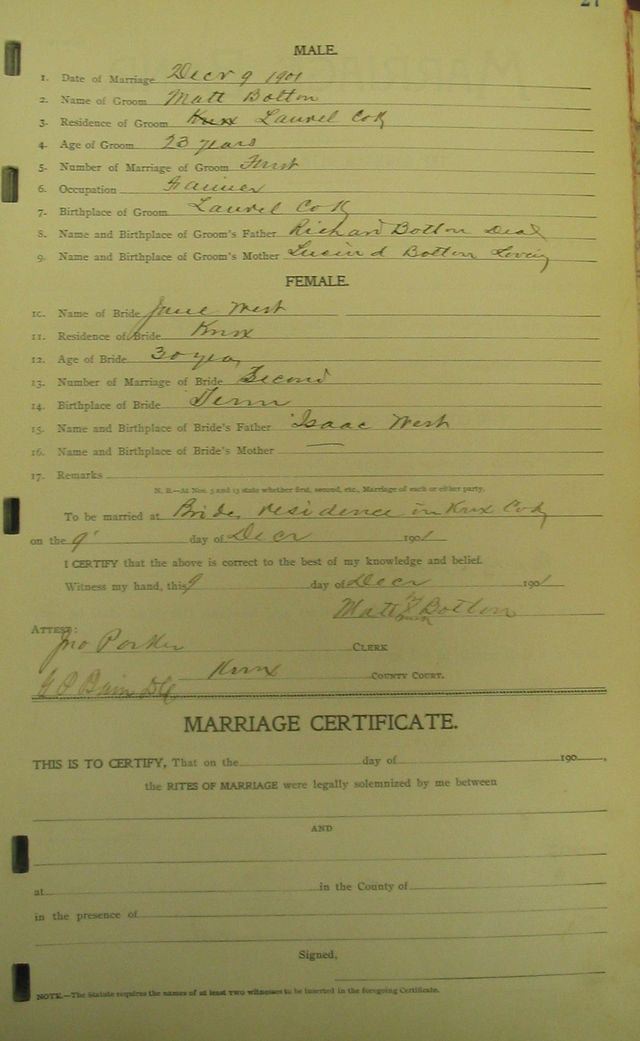 27
MALE.
1. Date of Marriage Decr 9 1901
2. Name of Groom Matt Botton
3. Residence of Groom Knx Laurel Co Ky
4. Age of Groom 23 years
5. Number of Marriage of Groom First
6. Occupation Farmer
7. Birthplace of Groom Laurel Co K
8. Name and Birthplace of Groom's Father Richard Botton Dead
9. Name and Birthplace of Groom's Mother Lucind Botton Living
FEMALE.
10. Name of Bride Jane West
11. Residence of Bride Knx
12. Age of Bride 30 years
13. Number of Marriage of Bride Second
14. Birthplace of Bride Tenn
15. Name and Birthplace of Bride's Father Isaac West
16. Name and Birthplace of Bride's Mother —
17. Remarks
N. B.—At Nos. 5 and 13 state whether first, second, etc., Marriage of each or either party.
To be married at Brides residence in Knx Co Ky
on the 9 day of Decr 1901
I CERTIFY that the above is correct to the best of my knowledge and belief.
Witness my hand, this 9 day of Decr 1901
Matt X Botton
ATTEST:
Jno Parker CLERK
Knx COUNTY COURT.
Bain DC
MARRIAGE CERTIFICATE.
THIS IS TO CERTIFY, That on the day of 190 ,
the RITES OF MARRIAGE were legally solemnized by me between
AND
at in the County of
in the presence of
Signed,
NOTE.—The Statute requires the names of at least two witnesses to be inserted in the foregoing Certificate.